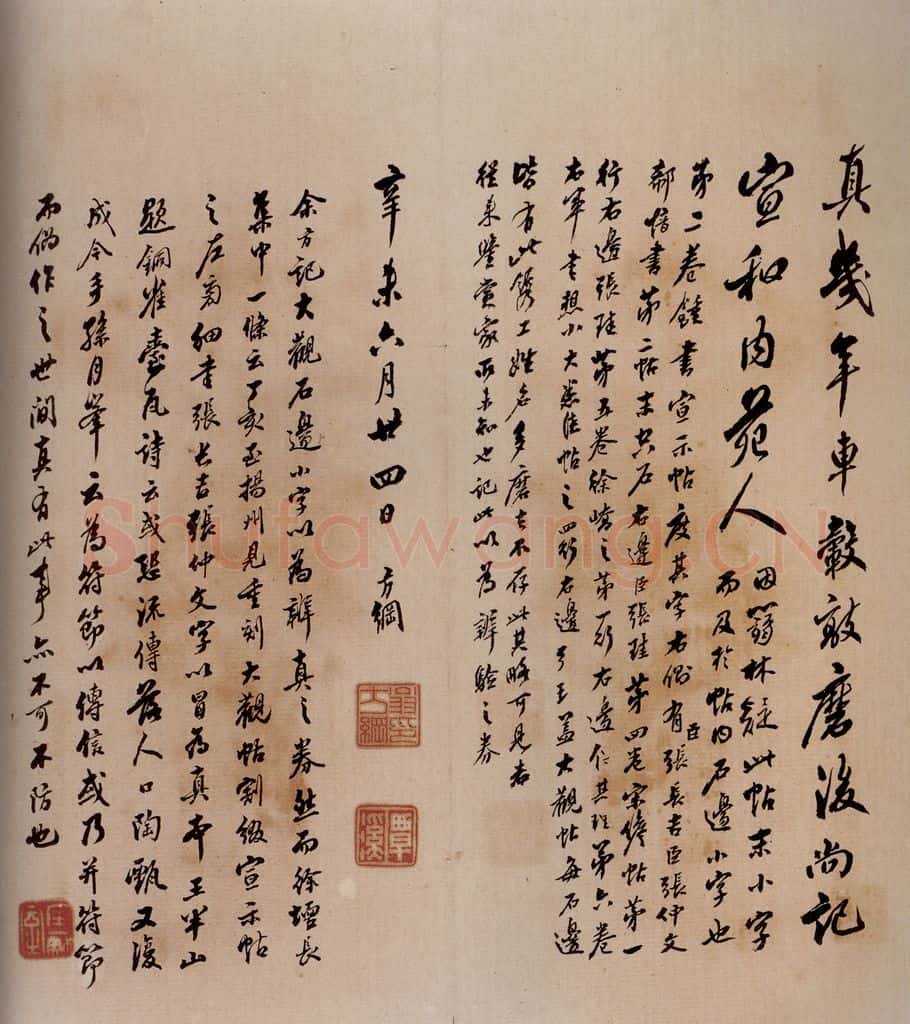 真幾年車轂敲磨後尚記
宣和內苑人
因蘀林疑此帖末小字
而及於帖內石邊小字也
第二卷鍾書宣示帖度其字右側有臣張長吉臣張仲文
郗愔書第二帖末只石右邊臣張珪第四卷宋儋帖第一
行右邊張珪第五卷徐嶠之第一行右邊仁其珵第六卷
右軍書想小大悉佳帖之四行右邊了王蓋大觀帖每石邊
皆有此鐫工姓名多磨去不存此其略可見者
從來鑒賞家所未知也記此以為辨驗之券
辛未六月廿四日 方綱
余方記大觀石邊小字以為辨真之券然而徐壇長
集中一條云丁亥至揚州見重刻大觀帖割綴宣示帖
之左旁細書張長吉張仲文字以冒為真本王半山
題銅雀臺瓦詩云或恐流傳落人口陶甄又復
成今手孫月峯云為符節以傳信或乃并符節
而偽作之世間真有此事亦不可不防也
翁方綱
覃溪
Shufawang.CN